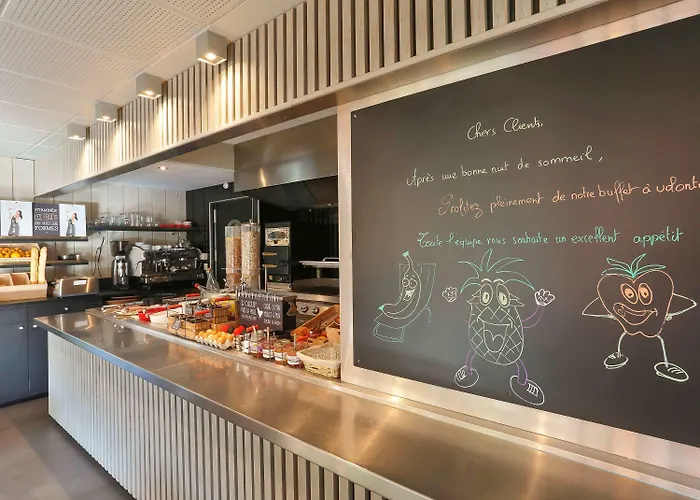 Chers Clients.
Après une bonne nuit de sommeil,
Profitez pleinement de notre buffet à volont
Toute l'équipe vous souhaite un excellent appétit